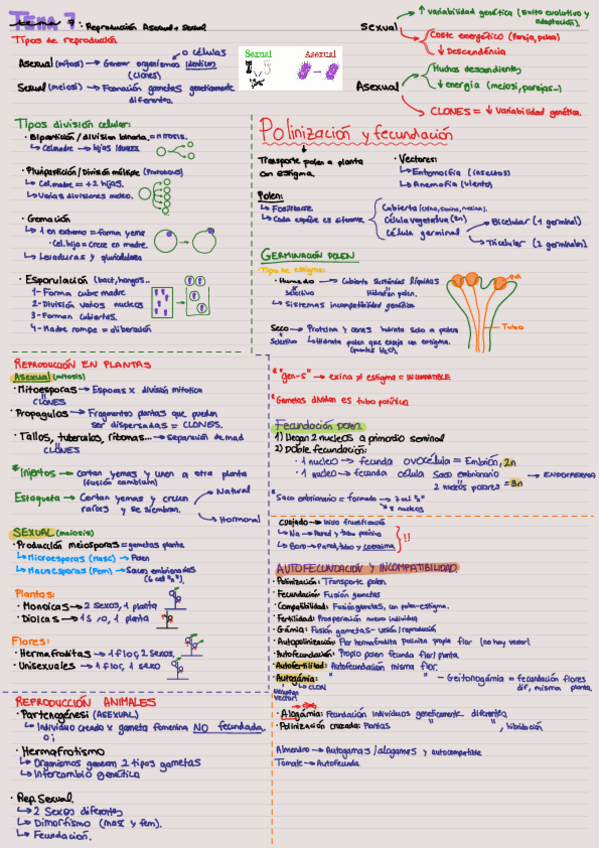 Tema 7: Reproducción Asexual + Sexual
Tipos de reproducción
Asexual (mitosis) → Generar organismos idénticos o células
(clones)
Sexual (meiosis) → Formación gametos genéticamente
diferentes.
Sexual Asexual
Sexual
↑ Variabilidad genética (éxito evolutivo y
adaptación).
Coste energético (Pareja, pulsos)
↓ Descendencia
Asexual
Muchos descendientes
↓ energía (meiosi, parejas...)
CLONES = ↓ Variabilidad genética.
Tipos división celular:
· Bipartición / división binaria. = mitosis.
↳ Cel madre → hijas idénticas.
· Pluripartición / División múltiple (Protozoos)
↳ Cel madre = +2 hijas.
↳ Varias divisiones núcleo.
· Gemación
↳ 1 en extremo = forma yema
· Cel. hija = crece en madre.
↳ Levaduras y
· Esporulación (bact, hongos..
1- Forma cubre madre
2- División varios nucleos
3- Forman cubiertas.
4- Madre rompe = liberación
Polinización y fecundación
Transporte polen a planta
con estigma.
· Vectores:
↳ Entomofilia (insectos)
↳ Anemofilia (viento)
Polen:
↳ Cada espécie es diforme
Cubierta
Célula vegetativa (2n)
Célula germinal
Bicelular (1 germinal)
Tricelular (2 germinales)
GERMINACIÓN POLEN
Tipos de estigma:
· Humedo → Cubierto sustancias líquidas
Selectivo Hidratan polen.
↳ Sistemas incompatibilidad genética
Seco → Proteina y ceras hidrata solo a polen
Selectivo ↳ Hidrata polen que encaja con estigma.
(puentes H₂O)
Tubo
REPRODUCCIÓN EN PLANTAS
Asexual (mitosis)
· Mitoesporas → Esporas x división mitotica
CLONES
· Propagulos → Fragmentos plantas que pueden
ser dispersadas = CLONES.
· Tallos, tuberculos, rizomas... → Separación de mad
CLONES
* Injertos → cortan yemas y unen a otra planta
(fusión cambium)
Estaqueta → Cortan yemas y crecen
raíces y se siembran.
Natural
Hormonal
SEXUAL (meiosis)
· Producción meiosporas = gametos planta
↳ Microesporas (Masc) → Polen
↳ Macroesporas (Fem) → Sacos embrionarios
(6 cel "n").
Plantas:
· Monoicas → 2 sexos, 1 planta
· Dioicas → 1 s ♂, 1 planta
Flores:
· Hermafroditas → 1 flor, 2 sexos.
· Unisexuales → 1 flor, 1 sexo
* "gen-s" → exina ≠ estigma = INCOMPATIBLE
* Gametos dividen es tubo polínico
Fecundación polen.
1) Llegan 2 nucleos a primordio seminal
2) Doble fecundación:
· 1 nucleo → fecunda ovocélula = Embrión, 2n
· 1 nucleo → fecunda célula saco embrionario
2 núcleos polares = 3n → ENDOSPERMA
* Saco embrionario = formado → 7 cel "n"
↳ 8 nucleos
Cuajado → Inicio fructificación
!!
AUTOFECUNDACIÓN Y INCOMPATIBILIDAD
· Polinización: Transporte polen.
· Fecundación: Fusión gametos
· Compatibilidad: Fusión gametos, con polen-estigma.
· Fertilidad: Prosperación nuevo individuo
· Gámia: Fusión gametos - unión/reproducción
· Autopolinización: Flor hermafrodita poliniza propia flor (no hay vector)
· Autofecundación: Propio polen fecunda flor/planta
· Autofertilidad: Autofecundación misma flor.
· Autogámia: " " - Geitonogámia = fecundación flores
↳ CLON dif, misma planta.
· Alogámia: Fecundación individuos genéticamente diferentes
· Polinización cruzada: Plantas " ", hibridación
Almendro → Autogamas / alogamas y autocompatible
Tomate → Autofecunda
REPRODUCCIÓN ANIMALES
· Partenogénesi (ASEXUAL)
↳ Individuo creado x gameto femenino NO fecundado.
· Hermafrotismo
↳ Organismos generan 2 tipos gametos
↳ Intercambio genético
· Rep. Sexual.
↳ 2 sexos diferentes
↳ Dimorfismo (masc y fem).
↳ Fecundación.